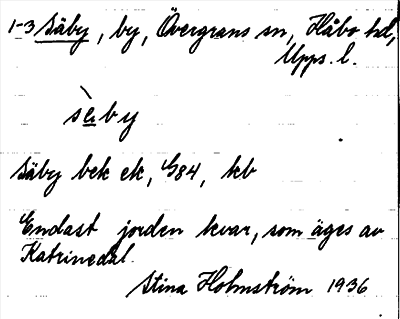 1-3 Säby, by, Övergrans sn, Håbo hd,
Upps. l.
sè̱by
Säby bek ek, G84, kb
Endast jorden kvar, som äges av
Katrinedal.
Stina Holmström 1936